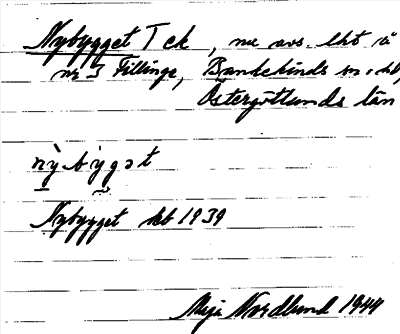 Nybygget T ck, nu avs. lht å
nr 3 Fillinge, Bankekinds sn o. hd,
Östergötlunds län
nỳbýgət
Nybygget kb 1839
Maja Nordlund 1944